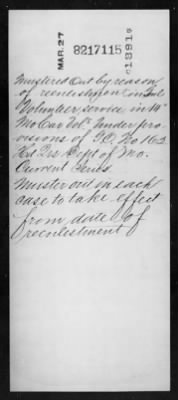 MAR. 27
8217115
1891
Mustered Out by reason
of reenlisting in
Volunteer service in 14"
Mo Cav Vols. Under pro-
visions of G.O. No 163
Hd Qrs Dept of Mo.
Current Series.
Muster out in each
case to take effect
from date of
reenlistment